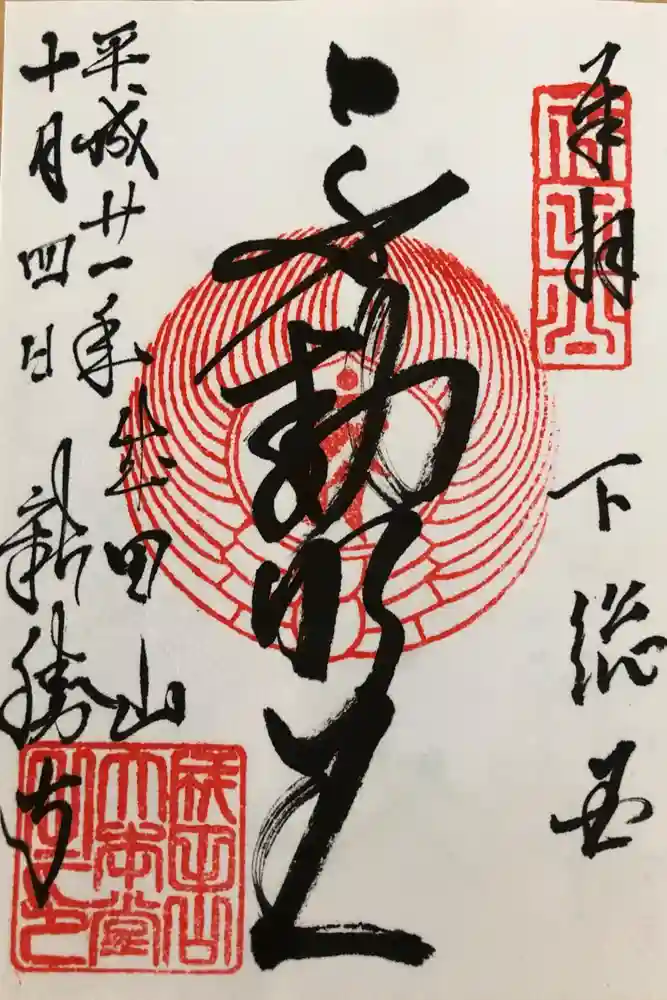 奉拝
下総国
不動明王
平成廿一年成田山
十月四日 新勝寺
成田山
大本堂
之印